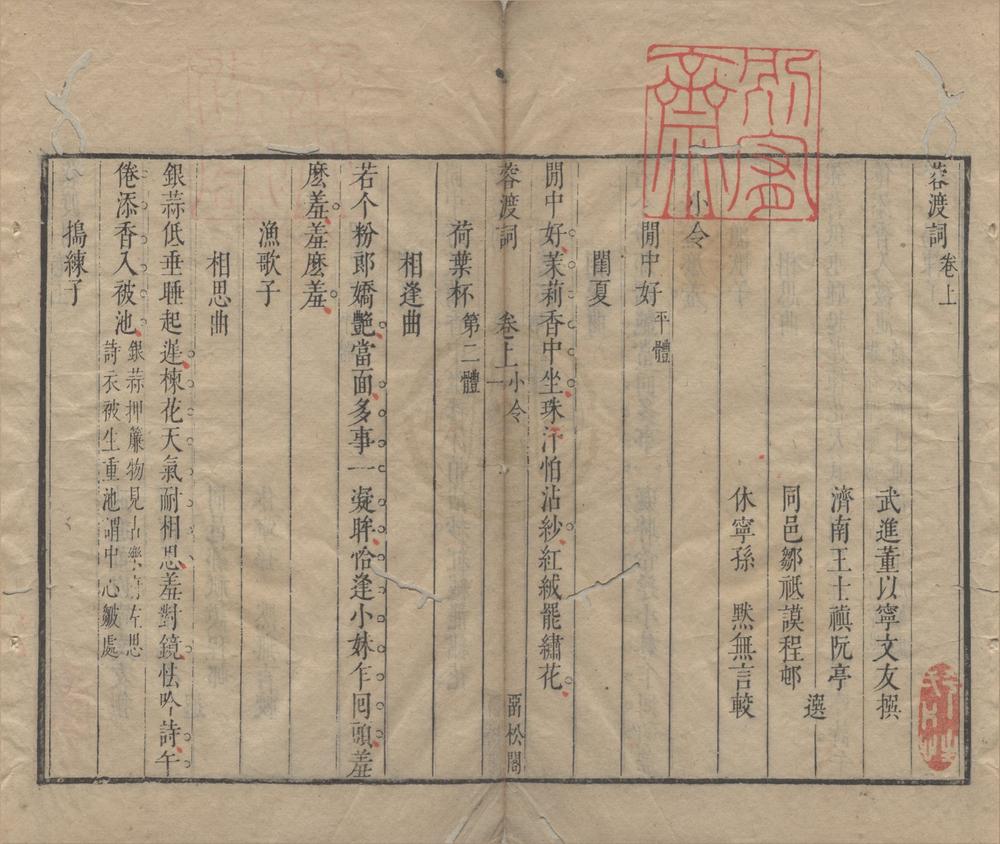 蓉渡詞 卷上
武進董以寧文友撰
濟南王士禛阮亭
同邑鄒祗謨程邨
選
休寧孫 默無言較
小令
閒中好 平體
閨夏
閒中好茉莉香中坐珠汗怕沾紗紅絨罷繡花
蓉渡詞 卷上 小令 一 留松閣
荷葉杯 第二體
相逢曲
若个粉郎嬌艷當面多事一凝眸恰逢小妹乍回頭羞
麼羞羞麼羞
漁歌子
相思曲
銀蒜低垂睡起遲楝花天氣耐相思羞對鏡怯吟詩午
倦添香入被池
銀蒜押簾物見山樂府左思
詩衣被生重池謂中心皺處
搗練子